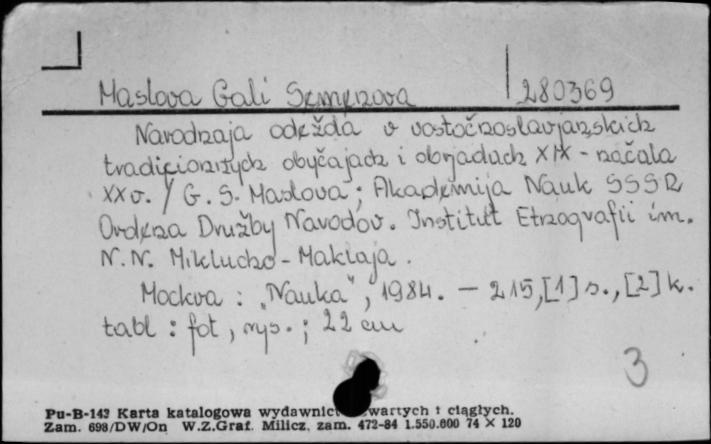 Maslova Gali Semenova 280369
Narodnaja odežda v vostočnoslavjanskich
tradicionnych obyčajach i obrjadach XIX - načala
XX v. / G. S. Maslova ; Akademija Nauk SSSR
Ordena Družby Narodov. Institut Etnografii im.
N. N. Miklucho - Maklaja .
Mockva : „Nauka", 1984. - 215, [1] s., [2] k.
tabl : fot , rys. ; 22 cm
3
Pu-B-143 Karta katalogowa wydawnict wartych i ciągłych.
Zam. 698/DW/On W.Z.Graf. Milicz, zam. 472-84 1.550.000 74 × 120